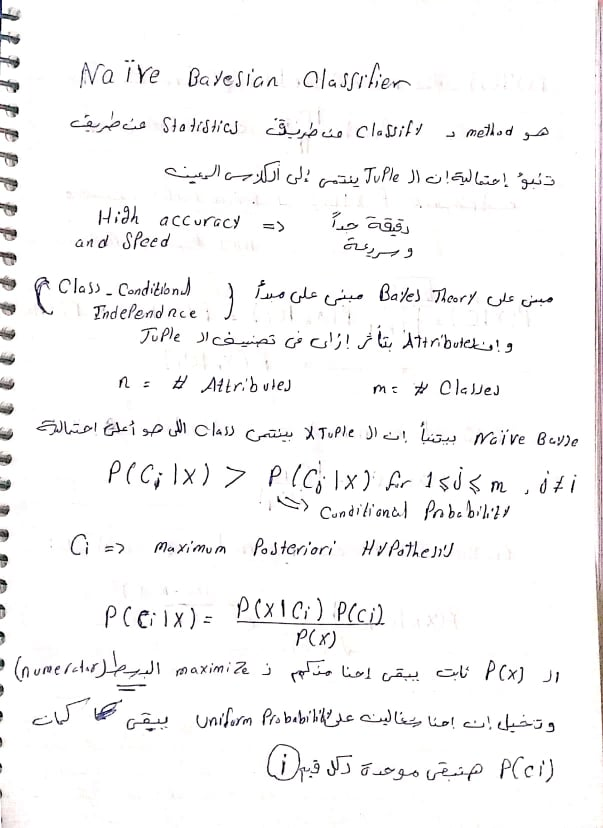 Naïve Bayesian Classifier
هو method د Classify عن طريق Statistics عن طريق
تنبؤ إحتمالية إن ال Tuple ينتمى إلى الكلاس المعين
High accuracy and Speed => دقيقة جداً وسريعة
مبنى على Bayes Theory مبنى على مبدأ { Class_Conditional Independnce }
Attributes بتأثر إزاى فى تصنيف ال Tuple
n = # Attributes m = # Classes
Naïve Bayse بيتنبأ إن ال Tuple X بينتمى Class اللى هو أعلى احتمالية
P(Ci|x) > P(Cj|x) for 1≤j≤m , j≠i
=> Conditional Probability
Ci => maximum Posteriori Hypothesis
P(Ci|x) = P(X|Ci) P(Ci) / P(x)
ال P(x) ثابت يبقى إحنا نـ maximize البسط (numerator)
وتخيل إن إحنا شغالين على Uniform Probability يبقى كمان
P(ci) هتبقى موحدة لكل قيم i